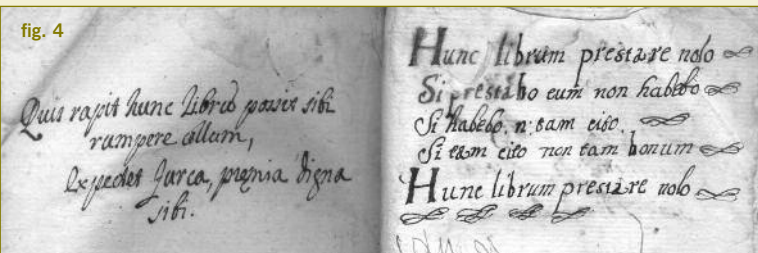 fig. 4
Quis rapit hunc librū possit sibi
rumpere collum,
Expectet furca, premia digna
sibi.
Hunc librum prestare nolo
Si prestabo eum non habebo
Si habebo, n: tam cito.
Si tam cito non tam bonum
Hunc librum prestare nolo